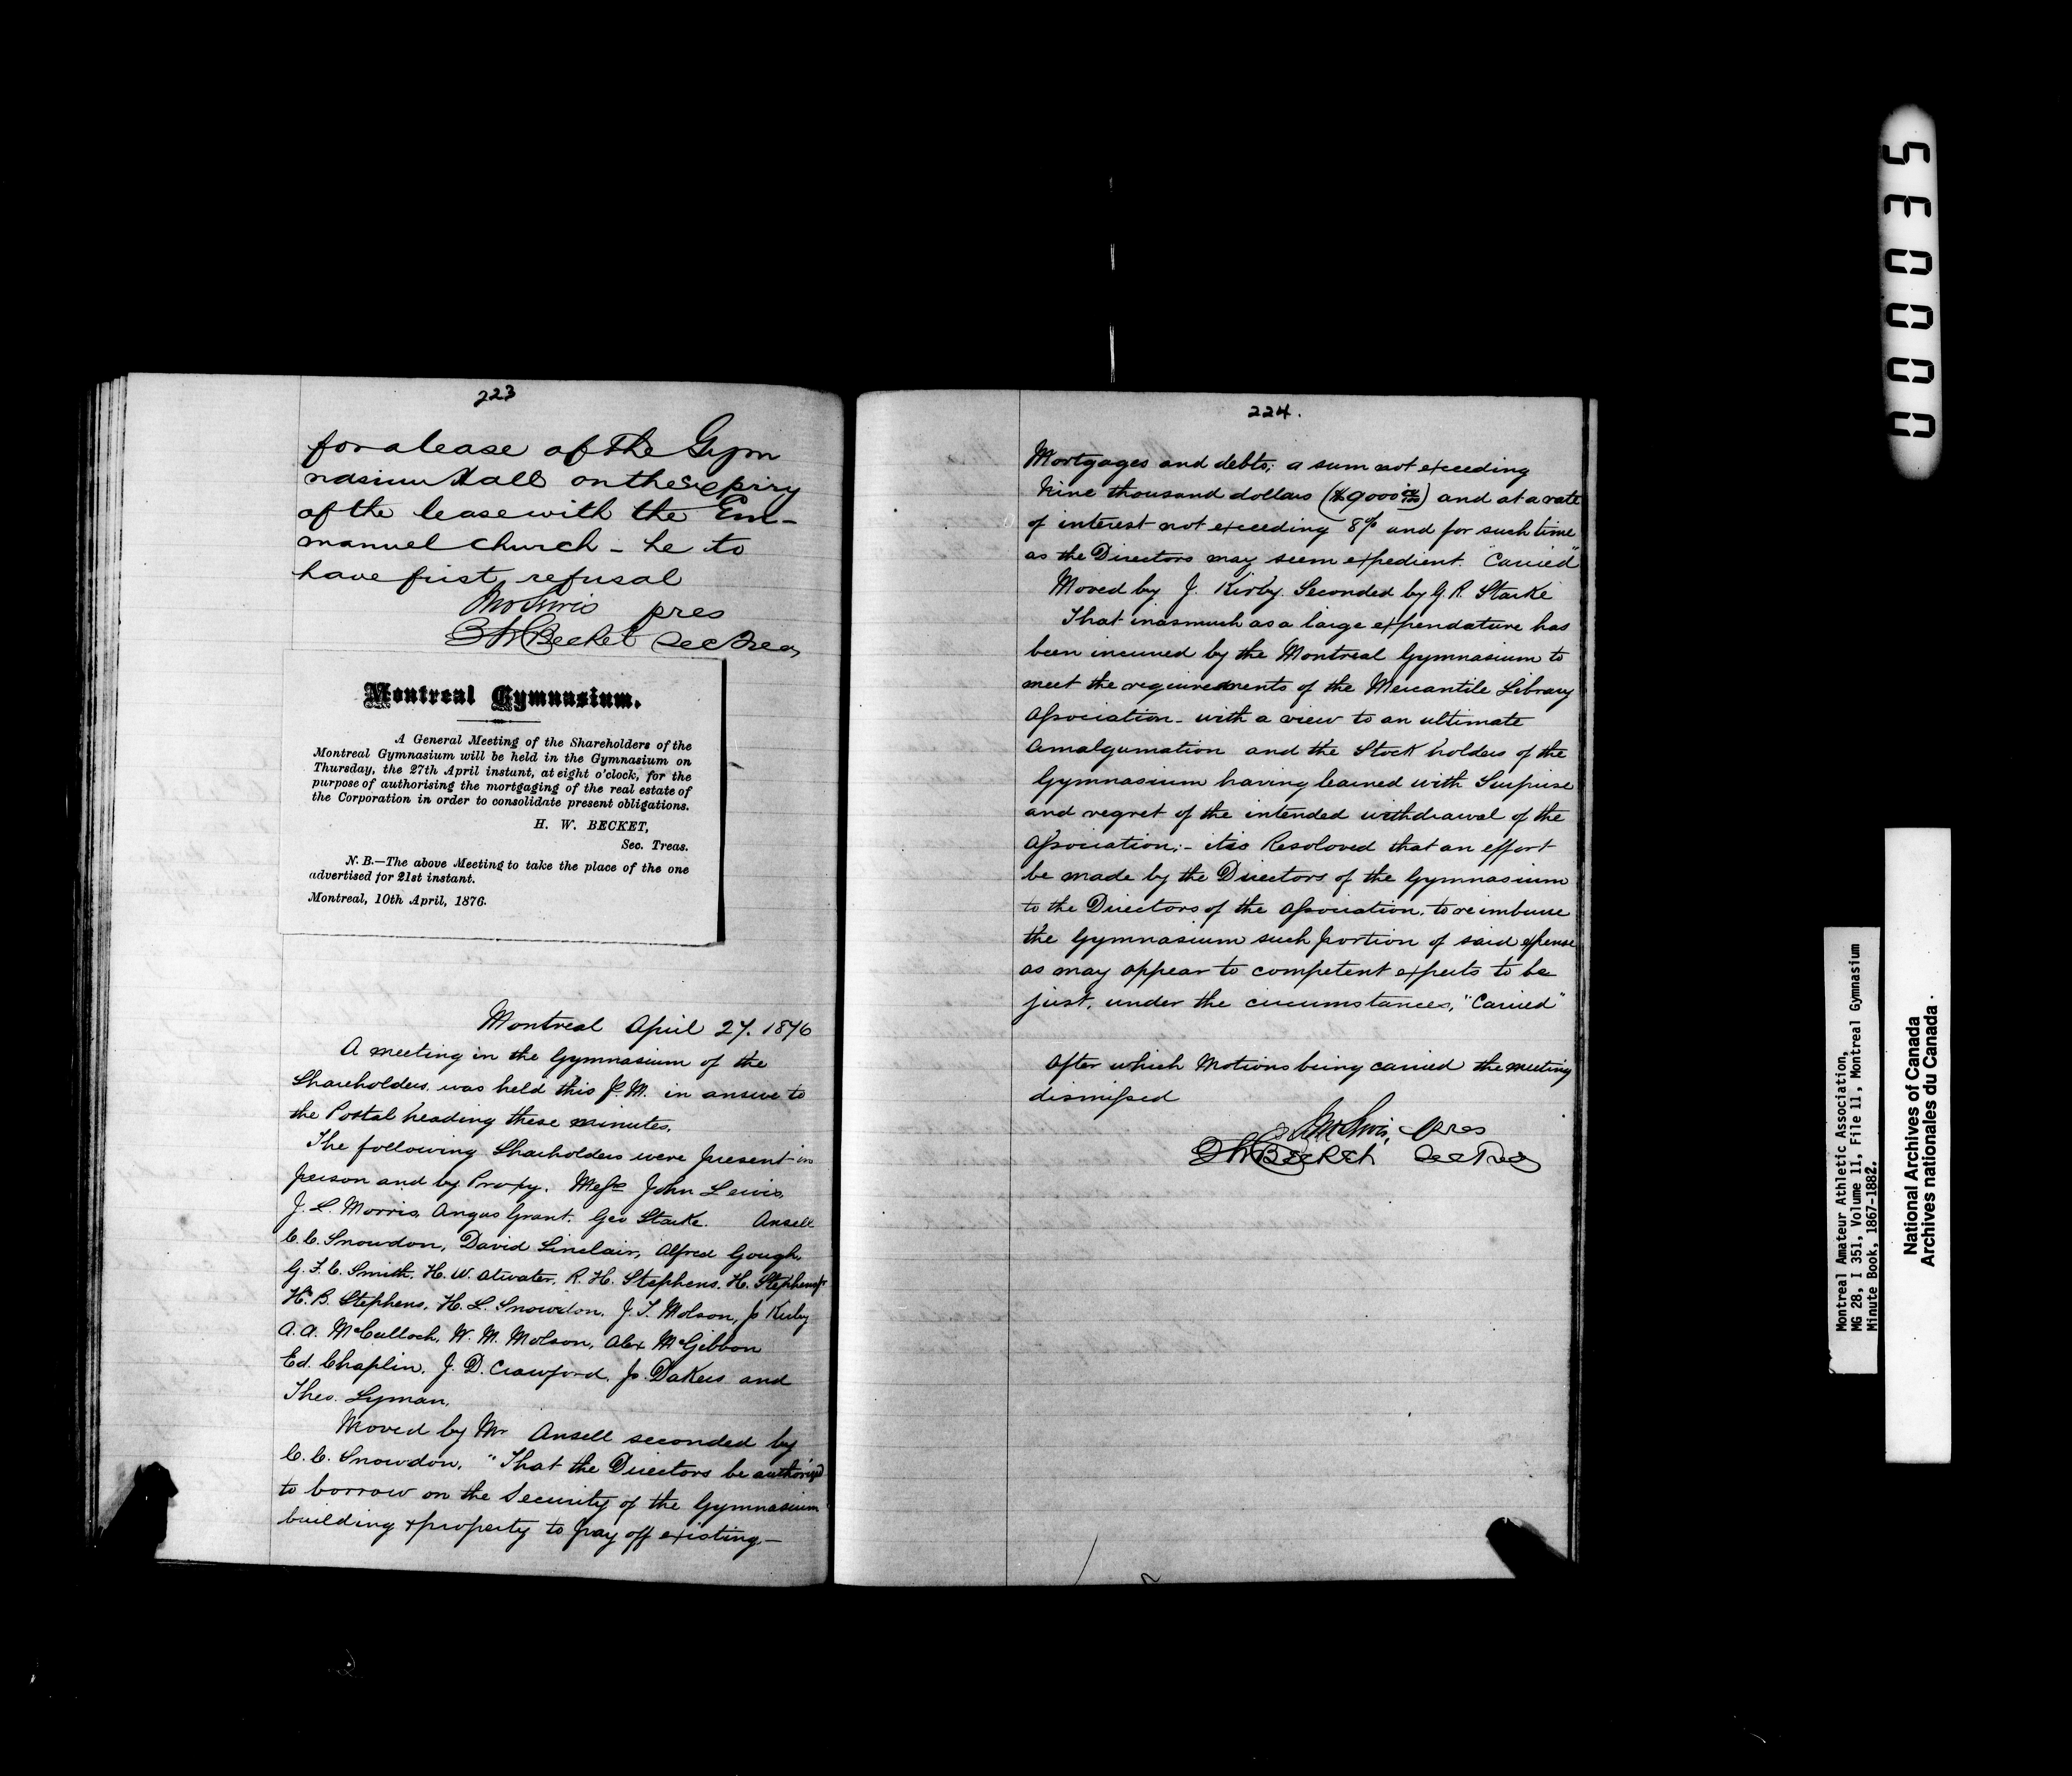 223
for a lease of the Gym
nasium Hall on the expiry
of the lease with the Em-
manuel church - he to
have first refusal
Jno Lewis pres
H W Becket Sec Treas
Montreal Gymnasium.
A General Meeting of the Shareholders of the
Montreal Gymnasium will be held in the Gymnasium on
Thursday, the 27th April instant, at eight o'clock, for the
purpose of authorising the mortgaging of the real estate of
the Corporation in order to consolidate present obligations.
H. W. BECKET,
Sec. Treas.
N. B.—The above Meeting to take the place of the one
advertised for 21st instant.
Montreal, 10th April, 1876.
Montreal April 27. 1876
A meeting in the Gymnasium of the
Shareholders was held this P.M. in answe to
the Postal heading these minutes.
The following Shareholders were present in
person and by Proxy. Messrs John Lewis,
J. L. Morris, Angus Grant. Geo Starke. Ansell
C. C. Snowdon, David Sinclair, Alfred Gough
G. F. C. Smith. H. W. Atwater. R. H. Stephens. H. Stephens Jr
H. B. Stephens. H. L. Snowdon. J. T. Molson, Js Kirby
A. A. McCulloch, W. M. Molson, Alex McGibbon
Ed. Chaplin. J. D. Crawford. Js. Dakers and
Theo. Lyman.
Moved by Mr Ansell seconded by
C. C. Snowdon. "That the Directors be authorized
to borrow on the Security of the Gymnasium
building & property to pay off existing—
224.
Mortgages and debts; a sum not exceeding
Nine thousand dollars ($9000 00/100) and at a rate
of interest not exceeding 8% and for such time
as the Directors may seem expedient. "Carried"
Moved by J. Kirby. Seconded by G. R. Starke
That inasmuch as a large expendature has
been incurred by the Montreal Gymnasium to
meet the requirements of the Mercantile Library
Association - with a view to an ultimate
Amalgumation and the Stock holders of the
Gymnasium having learned with Surprise
and regret of the intended withdrawal of the
Association;- it is Resoloved that an effort
be made by the Directors of the Gymnasium
to the Directors of the Association, to reimburse
the Gymnasium such portion of said expense
as may appear to competent experts to be
just, under the circumstances, "Carried"
After which Motions being carried the meeting
dismissed
Jno Lewis, pres
H W Becket Sec Treas
50000 00035
Montreal Amateur Athletic Association,
MG 28, I 351, Volume 11, File 11, Montreal Gymnasium
Minute Book, 1867-1882.
National Archives of Canada
Archives nationales du Canada